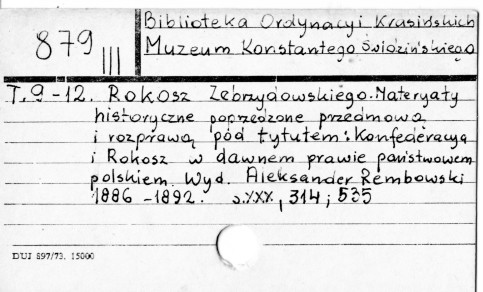 879 III
Biblioteka Ordynacyi Krasińskich
Muzeum Konstantego Świdzińskiego
T. 9-12. Rokosz Zebrzydowskiego. Materyały
historyczne poprzedzone przedmową
i rozprawą pod tytułem: Konfederacya
i Rokosz w dawnem prawie państwowem
polskiem. Wyd. Aleksander Rembowski
1886-1892. s. XXX, 314; 535
DUJ 897/73. 15000